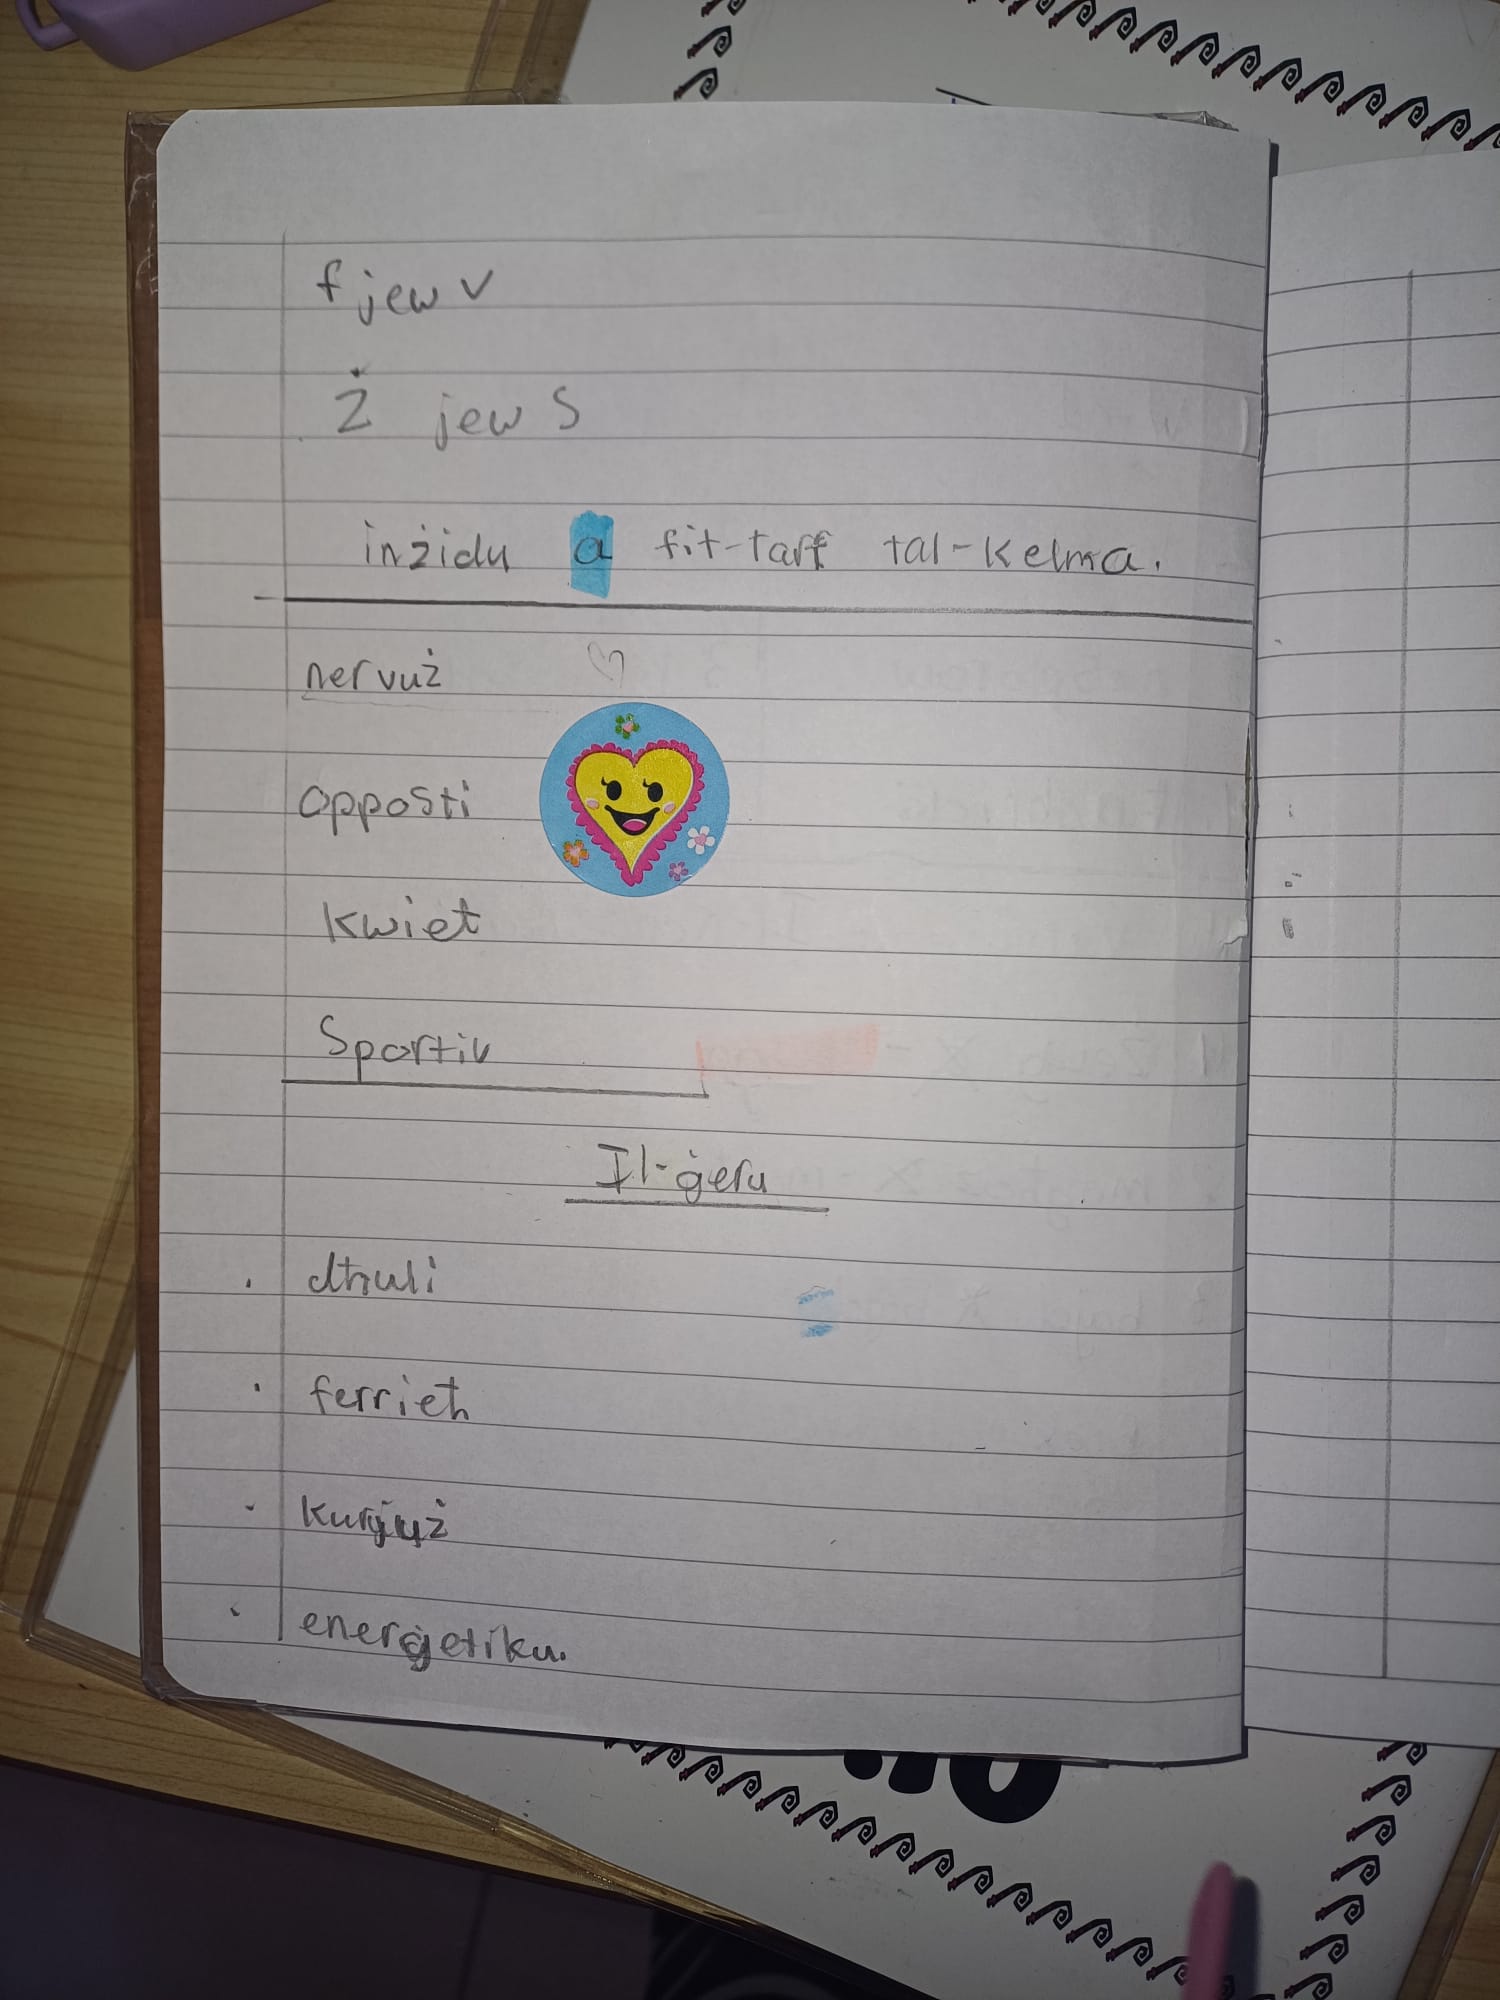 f jew v
Ż jew S
inżidu a fit-tarf tal-kelma.
nervuż
opposti
kwiet
Sportiv
Il-ġeru
dħuli
ferrieħ
kurjuż
energetiku.